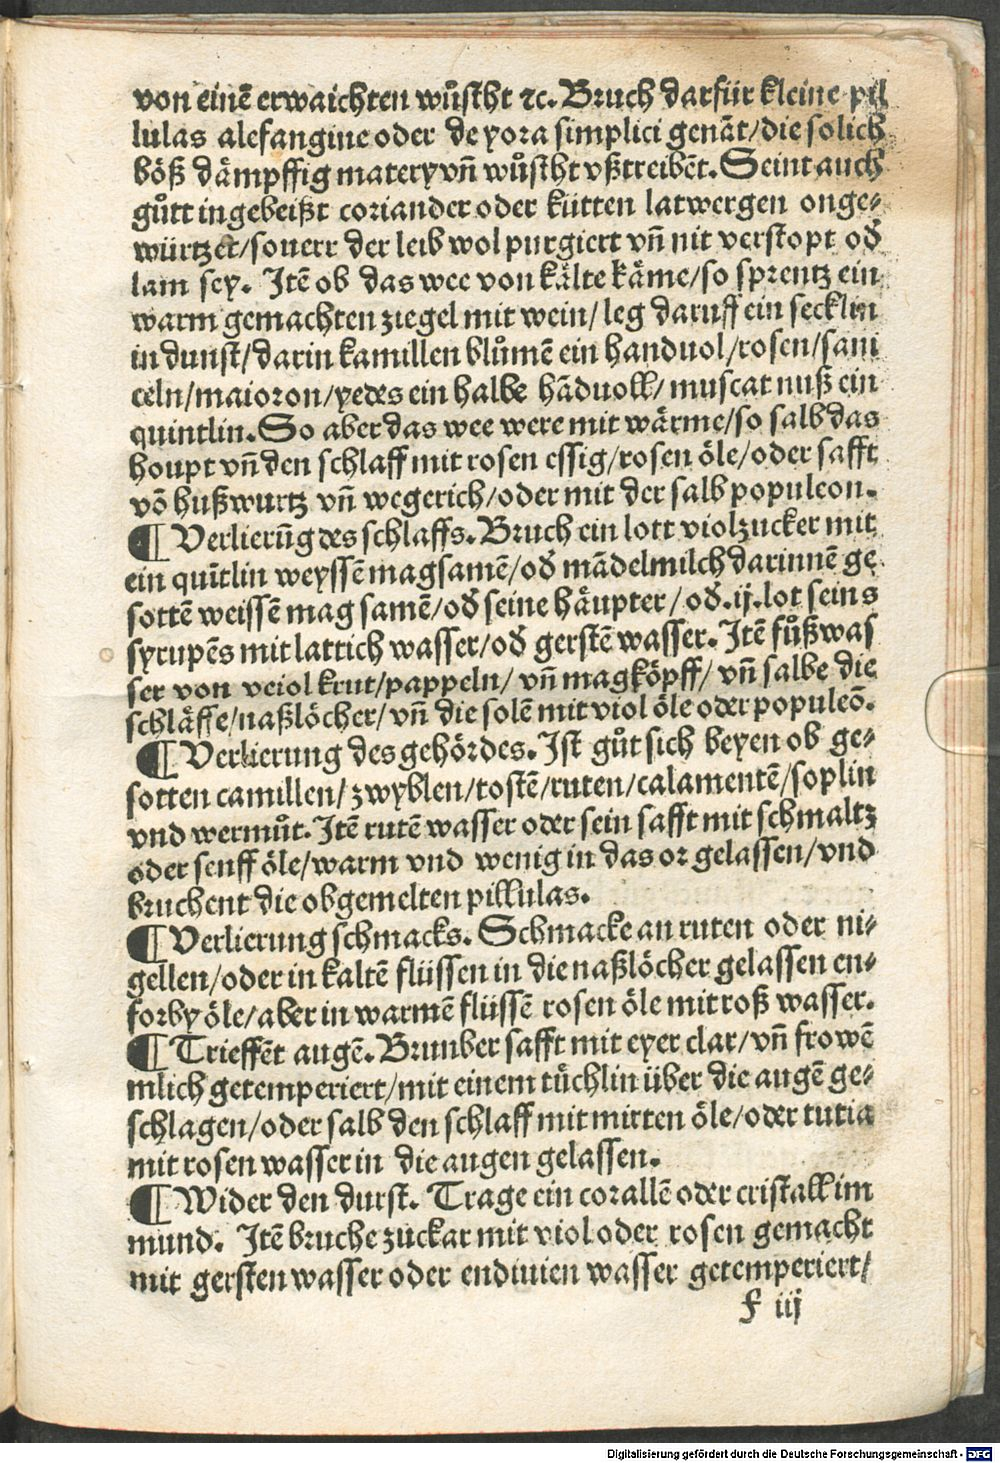 von einē erwaichten wůstht ⁊c. Bruch darfür kleine pil
lulas alefangine oder de yora simplici genāt/die solich
böß dämpffig matery vn̄ wůstht vßtreibēt. Seint auch
gůtt ingebeißt coriander oder kütten latwergen onge⸗
würtzet/souerr der leib wol purgiert vn̄ nit verstopt od̄
lam sey. Itē ob das wee von kälte käme/so sprentz ein
warm gemachten ziegel mit wein/leg daruff ein secklin
in dunst/darin kamillen blůmē ein handuol/rosen/sani
celn/maioron/yedes ein halbe hāduoll/muscat nuß ein
quintlin. So aber das wee were mit wärme/so salb das
houpt vn̄ den schlaff mit rosen essig/rosen öle/oder safft
vō hußwurtz vn̄ wegerich/oder mit der salb populeon.
¶ Verlierūg des schlaffs. Bruch ein lott violzucker mit
ein quītlin weyssem magsamē/od̄ mādelmilch darinnē ge
sottē weissē mag samē/od̄ seine häupter/od̄.ij.lot seins
syrupēs mit lattich wasser/od̄ gerstē wasser. Itē fůßwas
ser von veiol krut/pappeln/vn̄ magköpff/vn̄ salbe die
schläffe/naßlöcher/vn̄ die solē mit viol öle oder populeō.
¶ Verlierung des gehördes. Ist gůt sich beyen ob ge⸗
sotten camillen/zwyblen/tostē/ruten/calamentē/soplin
vnd wermůt. Itē rutē wasser oder sein safft mit schmaltz
oder senff öle/warm vnd wenig in das or gelassen/vnd
bruchent die obgemelten pillulas.
¶ Verlierung schmacks. Schmacke an ruten oder ni⸗
gellen/oder in kaltē flüssen in die naßlöcher gelassen en⸗
forby öle/aber in warmē flüssē rosen öle mit roß wasser.
¶ Trieffēt augē. Brunber safft mit eyer clar/vn̄ frowē
mlich getemperiert/mit einem tüchlin über die augē ge⸗
schlagen/oder salb den schlaff mit mirten öle/oder tutia
mit rosen wasser in die augen gelassen.
¶ Wider den durst. Trage ein corallē oder cristall im
mund. Itē bruche zuckar mit viol oder rosen gemacht
mit gersten wasser oder endiuien wasser getemperiert/
f iij
Digitalisierung gefördert durch die Deutsche Forschungsgemeinschaft - DFG